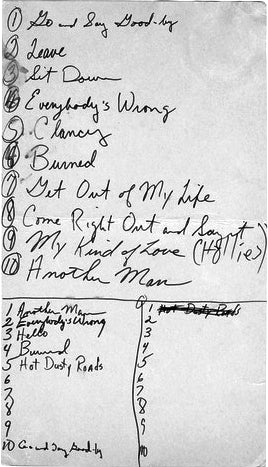 1 Go and Say Good-by
2 Leave
3 Sit Down
4 Everybody's Wrong
5 Clancy
6 Burned
7 Get Out of My Life
8 Come Right Out and Say it
9 My Kind of Love (Hollies)
10 Another Man
1 Another Man
2 Everybody's Wrong
3 Hello
4 Burned
5 Hot Dusty Roads
6
7
8
9
10 Go and Say Good-by
1 Hot Dusty Roads
2
3
4
5
6
7
8
9
10